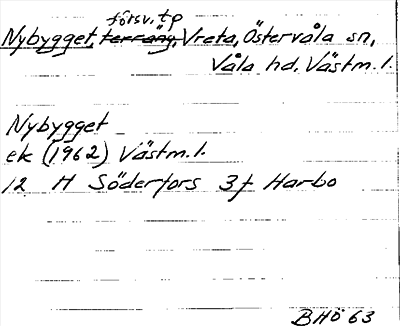 försv. tp
Nybygget, terräng, Vreta, Östervåla sn,
Våla hd. Västm. l.
Nybygget
ek (1962) Västm. l.
12 H Söderfors 3f Harbo
BHÖ 63